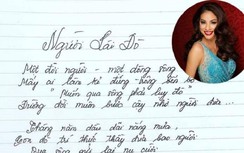 Người Lái Đò
Một đời người - một dòng sông
Mấy ai làm kẻ đứng trông bến bờ
"Muốn qua sông phải lụy đò"
Đường đời muôn bước cậy nhờ người đưa ...
Tháng năm dầu dãi nắng mưa,
Con đò trí thức thầy đưa bao người
Qua sông gửi lại nụ cười